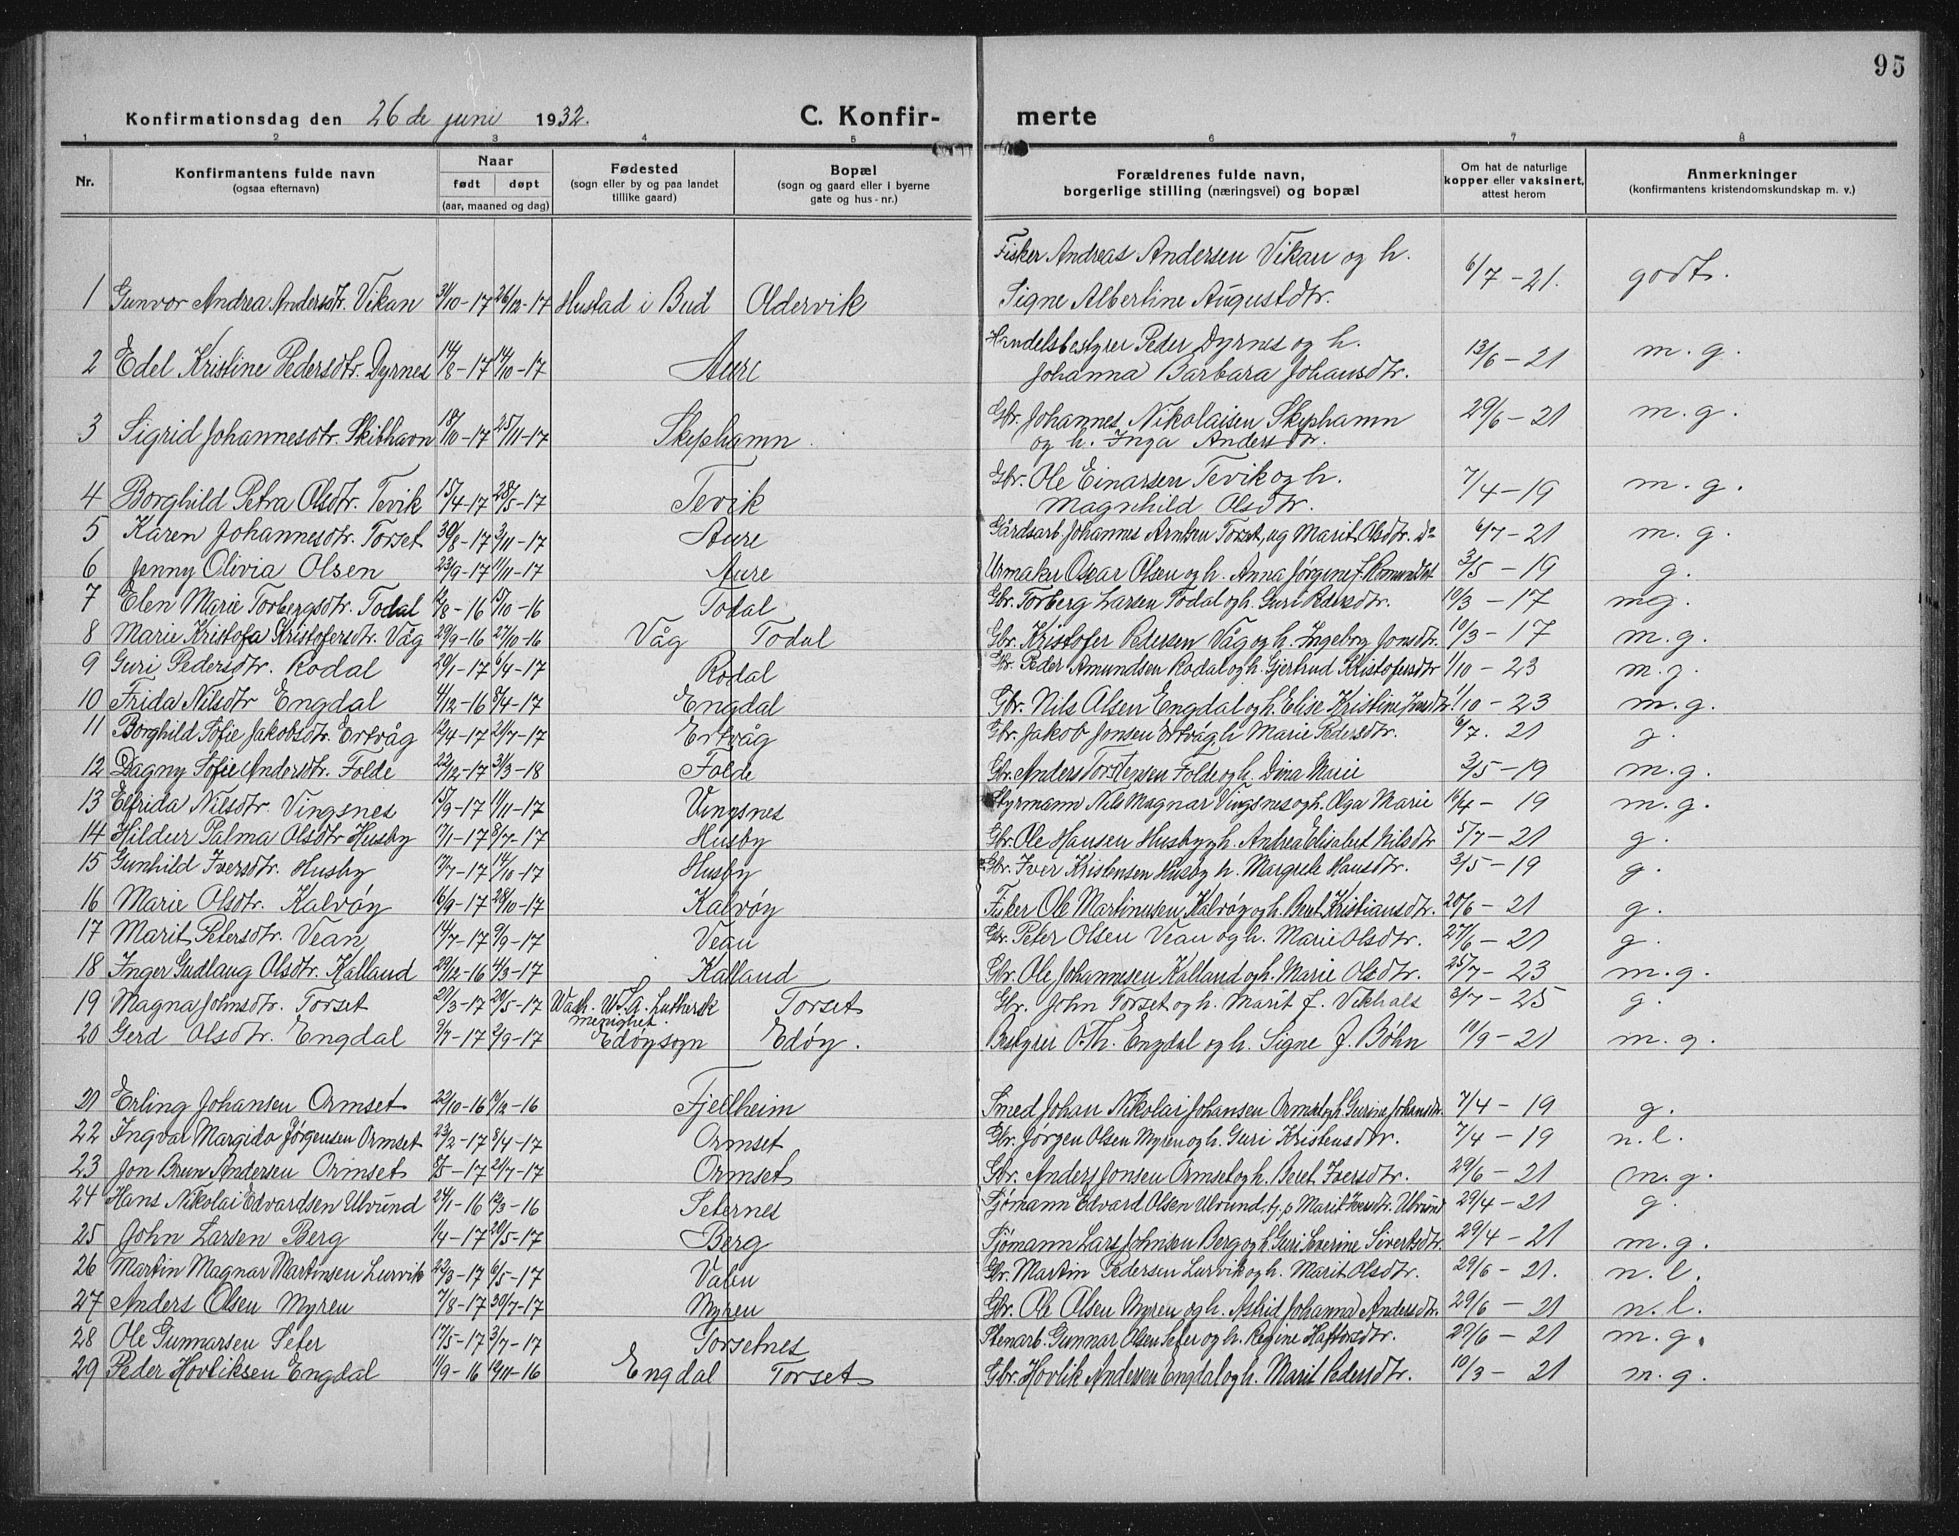 95
Konfirmationsdag den 26de juni 1932. C. Konfir- merte
1 2 3 4 5 6 7 8
Nr. Konfirmantens fulde navn (ogsaa efternavn) Naar født døpt (aar, maaned og dag) Fødested (sogn eller by og paa landet tillike gaard) Bopæl (sogn og gaard eller i byerne gate og hus-nr.) Forældrenes fulde navn, borgerlige stilling (næringsvei) og bopæl Om hat de naturlige kopper eller vaksinert, attest herom Anmerkninger (konfirmantens kristendomskundskap m. v.)
1 Gunvor Andrea Andersdtr. Vikan 31/10-17 26/12-17 Hustad i Bud Oldervik Fisker Andreas Andersen Vikan og h. Signe Albertine Augustdtr. 6/7-21. godt.
2 Edel Kristine Pedersdtr. Dyrnes 14/8-17 14/10-17 Aure Handelsbestyrer Peder Dyrnes og h. Johanna Barbara Johansdtr. 13/6-21 m.g.
3 Sigrid Johannesdtr. Skibhavn 18/10-17 25/11-17 Skiphamn Gbr. Johannes Nikolaisen Skiphamn og h. Inga Andersdtr. 29/6-21 m.g.
4 Borghild Petra Olsdtr. Tevik 15/4-17 28/5-17 Tevik Gbr. Ole Einarsen Tevik og h. Magnhild Olsdtr. 7/4-19 m.g.
5 Karen Johannesdtr. Torset 30/8-17 3/11-17 Aure Gårdsarb. Johannes Arntsen Torset og Marit Olsdtr. do 6/7-21 m.g.
6 Jenny Olivia Olsen 23/9-17 11/11-17 Aure Urmaker Oscar Olsen og h. Anna Jørgine f. Romundset 3/5-19 g.
7 Elen Marie Torbergsdtr. Todal 12/8-16 15/10-16 Todal Gbr. Torberg Larsen Todal og h. Guri Pedersdtr. 10/3-17 mg.
8 Marie Kristofa Kristofersdtr. Våg 29/9-16 27/10-16 Våg Todal Gbr. Kristofer Pedersen Våg og h. Ingeborg Jonsdtr. 10/3-17 m.g.
9 Guri Pedersdtr. Rodal 29/1-17 6/4-17 Rodal Gbr. Peder Amundsen Rodal og h. Gjertrud Kristofersdtr 1/10-23 m.g.
10 Frida Nilsdtr Engdal 4/12-16 8/4-17 Engdal Gbr. Nils Olsen Engdal og h. Elise Kristine Iversdtr 1/10-23 m.g.
11 Borghild Sofie Jakobsdtr. Ertvåg 12/4-17 21/7-17 Ertvåg Gbr. Jakob Jonsen Ertvåg, h Marie Pedersdtr. 6/7. 21 g.
12 Dagny Sofie Andersdtr. Folde 22/12-17 31/3-18 Folde Gbr. Anders Torstensen Folde og h. Dina Marie 3/5-19 m.g.
13 Elfrida Nilsdtr. Vingsnes 15/9-17 11/11-17 Vingsnes Styrmann Nils Magnar Vingsnes og h. Olga Marie 16/4-19 m.g.
14 Hildur Palma Olsdtr Husby 17/1-17 8/7-17 Husby Gbr. Ole Hansen Husby og h. Andrea Elisabet Nilsdtr 5/7-21 g.
15 Gunhild Iversdtr. Husby 17/7-17 14/10-17 Husby Gbr. Iver Kristensen Husby h. Margrete Hansdtr. 3/5-19 g.
16 Marie Olsdtr. Kalvøy 16/9-17 28/10-17 Kalvøy Fisker Ole Martinusen Kalvøy og h. Beret Kristiansdtr. 20/6-21 g.
17 Marit Petersdtr. Vean 14/7-17 9/9-17 Vean Gbr. Peter Olsen Vean og h. Marie Olsdtr. 27/6-21 g.
18 Inger Gudlaug Olsdtr. Kalland 29/12-16 4/3-17 Kalland Gbr. Ole Johannesen Kalland og h. Marie Olsdtr. 25/7-23 m.g.
19 Magna Johnsdtr. Torset 21/3-17 20/5-17 Wash. U.S.A. Luthersk menighet. Torset Gbr. John Torset og h. Marit f. Vikhals 3/7-25 g.
20 Gerd Olsdtr. Engdal 9/7-17 2/9-17 Edøysogn Edøy. Bestyrer O. Th. Engdal og h. Signe f. Bøhn 10/9-21 m.g.
21 Erling Johansen Ormset 22/10-16 10/12-16 Fjellheim Smed Johan Nikolai Johansen Ormset og h. Gurina Johansdtr. 7/4-19 g.
22 Ingvar Margido Jørgensen Ormset 23/2-17 8/4-17 Ormset Gbr. Jørgen Olsen Myren og h. Guri Kristensdtr. 7/4-19 n.l.
23 Jon Brun Andersen Ormset 5/5-17 21/7-17 Ormset Gbr. Anders Jonsen Ormset og h. Beret Iversdtr. 29/6-21 m.g.
24 Hans Nikolai Edvardsen Ulvund 24/1-16 12/3-16 Seternes Sjømann Edvard Olsen Ulvund, Marit Iversdtr. Ulvund 29/4-21 g.
25 John Larsen Berg 1/4-17 20/5-17 Berg Sjømann Lars Johnsen Berg og h. Guri Severine Sivertsdtr. 29/4-21 m.g.
26 Martin Magnar Martinsen Lurvik 22/3-17 6/5-17 Valen Gbr. Martin Pedersen Lurvik og h. Marit Olsdtr. 29/6-21. n.l.
27 Anders Olsen Myren 7/8-17 30/7-17 Myren Gbr. Ole Olsen Myren og h. Astrid Johanna Andersdtr. 29/6-21 n.l.
28 Ole Gunnarsen Seter 17/5-17 3/7-17 Torsetnes Stenarb. Gunnar Olsen Seter og h. Regine Haftorsdtr. 29/6-21 m.g.
29 Peder Hovliksen Engdal 11/9-16 12/11-16 Engdal Torset Gbr. Hovlik Andersen Engdal og h. Marit Pedersdtr. 10/3-21 m.g.